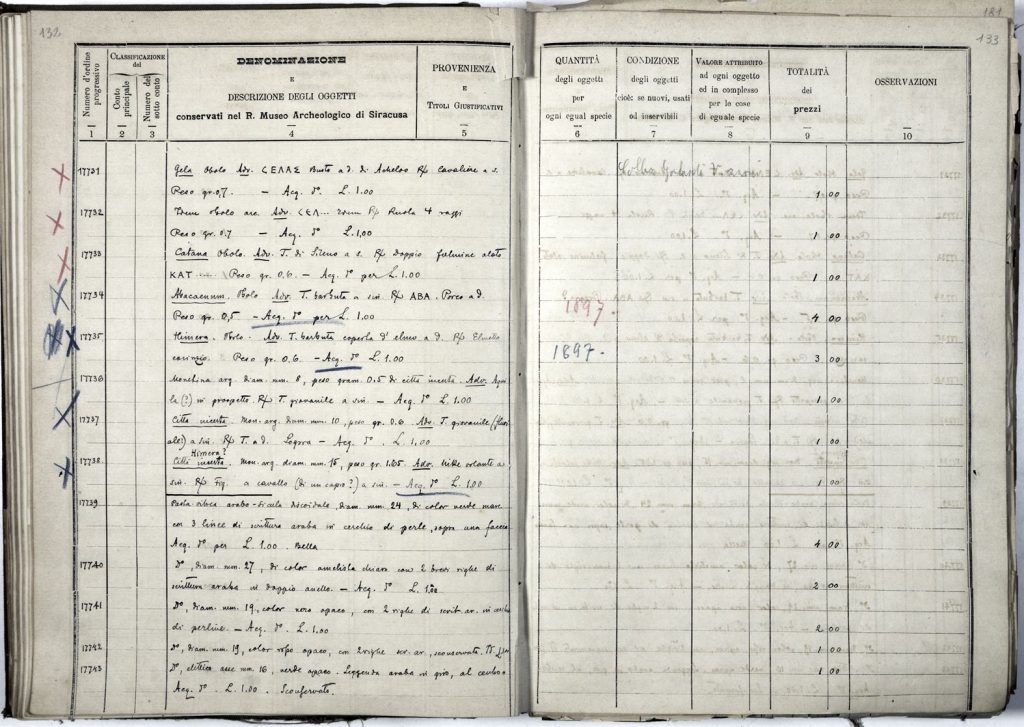 132
Numero d'ordine progressivo
CLASSIFICAZIONE del
Conto principale
Numero del sotto conto
DENOMINAZIONE
E
DESCRIZIONE DEGLI OGGETTI
conservati nel R. Museo Archeologico di Siracusa
PROVENIENZA
E
TITOLI GIUSTIFICATIVI
1 2 3 4 5
17731 Gela Obolo Adv. CΕΛΑΣ Busto a d. di Acheloo R/ Cavallino a s.
Peso gr. 0,7. — Acq. d° L. 1.00
17732 Idem obolo arc. Adv. CΕΛ... idem R/ Ruota 4 raggi
Peso gr. 0.7 — Acq. d° L. 1,00
17733 Catana Obolo. Adv. T. di Sileno a s. R/ Doppio fulmine alato
KAT Peso gr. 0,6. — Acq. d° per L. 1.00
17734 Abacaenum. Obolo Adv. T. barbuta a sin. R/ ABA. Porco a d.
Peso gr. 0,5 — Acq. d° per L. 1.00
17735 Himera. Obolo. Adv. T. barbuta coperta d'elmo a d. R/ Elmetto
corinzio. Peso gr. 0.6. — Acq. d° L. 1.00
17736 Monetina arg. diam. mm. 8, peso gram. 0.5 di città incerta. Adv. Aqui
la (?) in prospetto. R/ T. giovanile a sin. — Acq. d° L. 1.00
17737 Città incerta. Mon. arg. diam. mm. 10, peso gr. 0.6. Adv. T. giovanile (fluvi
ale?) a sin. R/ T. a d. Logora — Acq. d°. L. 1,00
Himera?
17738 Città incerta. Mon. arg. diam. mm. 15, peso gr. 1.65. Adv. Nike volante a
sin. R/ Fig. a cavallo (di un capro?) a sin. — Acq. d° L. 1.00
17739 Pasta vitrea arabo-sicula discoidale, diam. mm. 24, di color verde mare
con 3 linee di scrittura araba in cerchio di perle, sopra una faccia
Acq. d° per L. 1.00. Bella
17740 D°, diam. mm. 27, di color ametista chiaro con 2 brevi righe di
scrittura araba in doppio anello. — Acq. d° L. 1.00
17741 D°, diam. mm. 19, color nero opaco, con 2 righe di scrit. ar. in cerchio
di perline. — Acq. d°. L. 1.00
17742 D°, diam. mm. 19, color roseo opaco, con 2 righe scr. ar., sconservata.
17743 D°, elittico asse mm. 16, verde opaco. Leggenda araba in giro, al centro
Acq. d°. L. 1.00. Sconservato.
181
133
QUANTITÀ
degli oggetti
per
ogni egual specie
CONDIZIONE
degli oggetti
cioè: se nuovi, usati
od inservibili
VALORE ATTRIBUITO
ad ogni oggetto
od in complesso
per le cose
di eguale specie
TOTALITÀ
dei
prezzi
OSSERVAZIONI
6 7 8 9 10
1 00
1 00
1 00
1897. 4 00
1897. 3 00
1 00
1 00
1 00
4 00
2 00
2 00
1 00
1 00